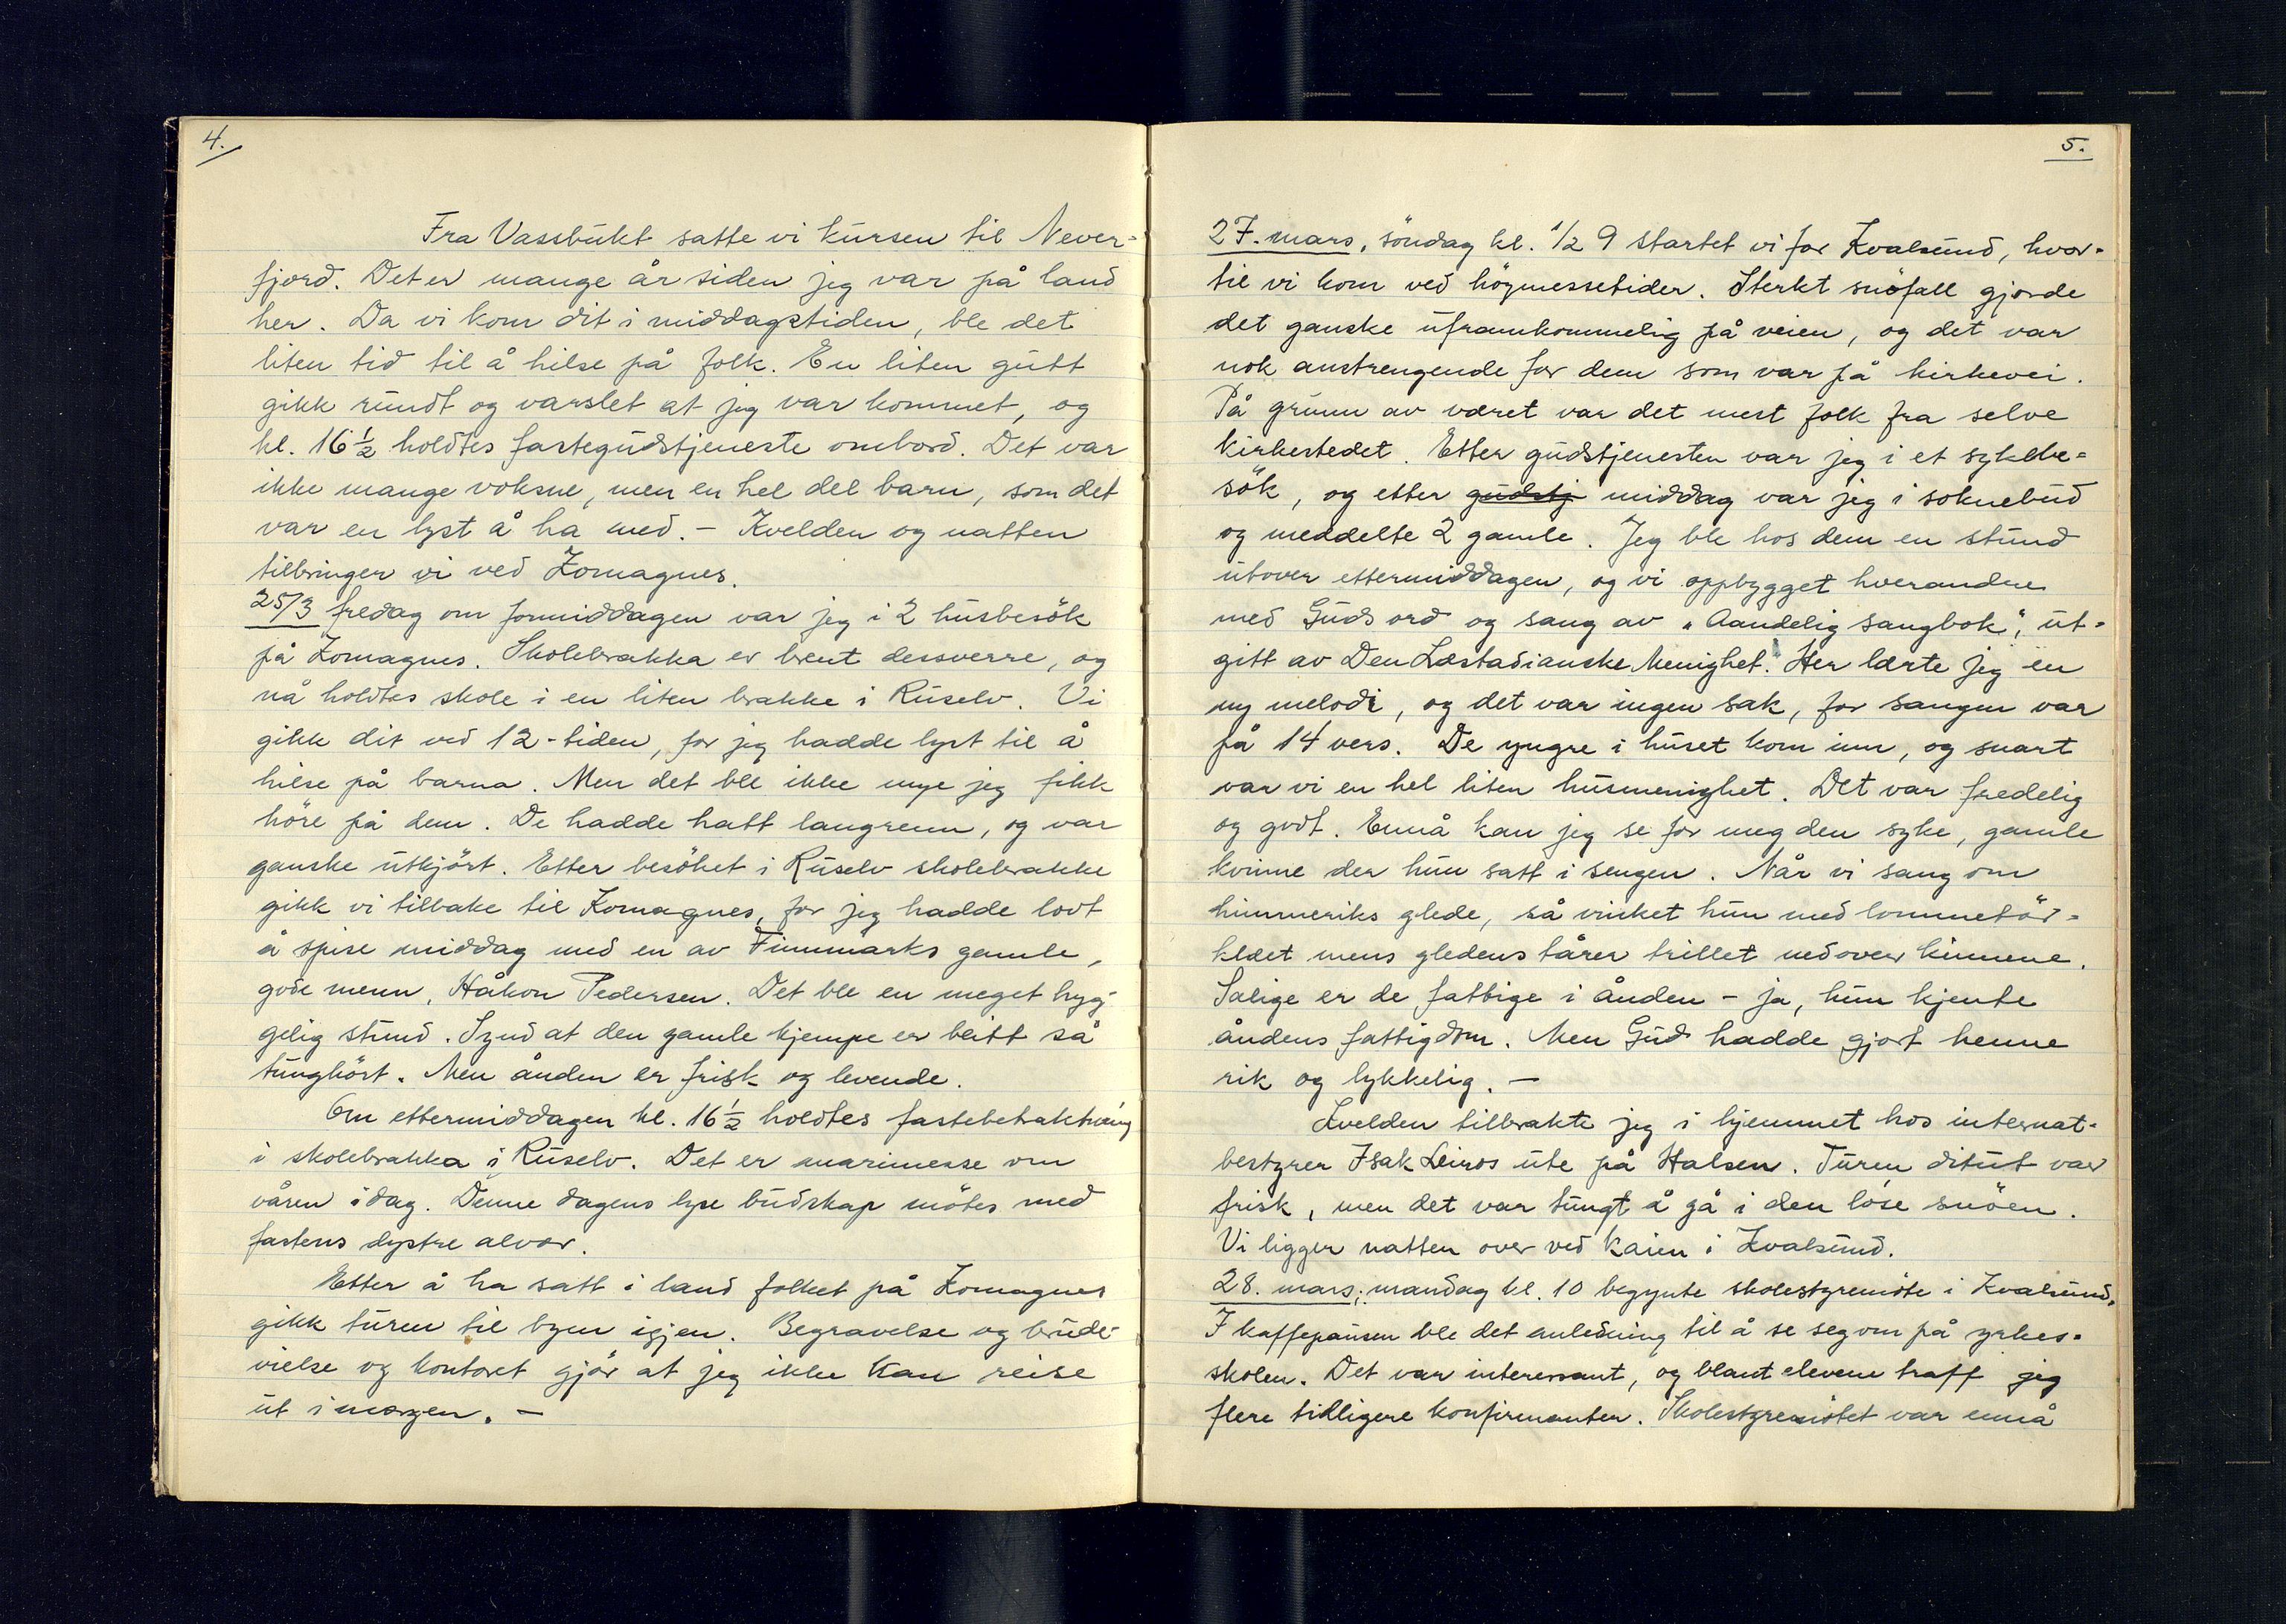 4.
Fra Vassbukt satte vi kursen til Never=
fjord. Det er mange år siden jeg var på land
her. Da vi kom dit i middagstiden, ble det
liten tid til å hilse på folk. En liten gutt
gikk rundt og varslet at jeg var kommet, og
kl. 16 1/2 holdtes fastegudstjeneste ombord. Det var
ikke mange voksne, men en hel del barn, som det
var en lyst å ha med. - Kvelden og natten
tilbringer vi ved Komagnes.
25/3 fredag om formiddagen var jeg i 2 husbesök
på Komagnes. Skolebrakka er brent dessverre, og
nå holdtes skole i en liten brakke i Ruselv. Vi
gikk dit ved 12-tiden, for jeg hadde lyst til å
hilse på barna. Men det ble ikke mye jeg fikk
höre på dem. De hadde hatt langrenn, og var
ganske utkjört. Etter besöket i Ruselv skolebrakke
gikk vi tilbake til Komagnes, for jeg hadde lovt
å spise middag med en av Finnmarks gamle,
gode menn, Håkon Pedersen. Det ble en meget hyg-
gelig stund. Synd at den gamle kjempe er blitt så
tunghört. Men ånden er frisk og levende.
Om ettermiddagen kl. 16 1/2 holdtes fastebetraktning
i skolebrakka i Ruselv. Det er marimesse om
våren idag. Denne dagens lyse budskap mötes med
fastens dystre alvor.
Etter å ha satt i land folket på Komagnes
gikk turen til byen igjen. Begravelse og brude-
vielse og kontoret gjör at jeg ikke kan reise
ut imorgen. -
5.
27. mars, söndag kl. 1/2 9 startet vi for Kvalsund, hvor=
til vi kom ved högmessetider. Sterkt snöfall gjorde
det ganske uframkommelig på veien, og det var
nok anstrengende for dem som var på kirkevei.
På grunn av været var det mest folk fra selve
kirkestedet. Etter gudstjenesten var jeg i et sykebe=
sök, og etter gudstj middag var jeg i soknebud
og meddelte 2 gamle. Jeg ble hos dem en stund
utover ettermiddagen, og vi oppbygget hverandre
med Guds ord og sang av "Aandelig sangbok", ut=
gitt av Den Læstadianske Menighet. Her lærte jeg en
ny melodi, og det var ingen sak, for sangen var
på 14 vers. De yngre i huset kom inn, og snart
var vi en hel liten husmenighet. Det var fredelig
og godt. Ennå kan jeg se for meg den syke, gamle
kvinne der hun satt i sengen. Når vi sang om
himmeriks glede, så vinket hun med lommetör=
kleet mens gledens tårer trillet nedover kinnene.
Salige er de fattige i ånden - ja, hun kjente
åndens fattigdom. Men Gud hadde gjort henne
rik og lykkelig. -
Kvelden tilbrakte jeg i hjemmet hos internat=
bestyrer Isak Leiros ute på Halsen. Turen ditut var
frisk, men det var tungt å gå i den löse snöen.
Vi ligger natten over ved kaien i Kvalsund.
28. mars, mandag kl. 10 begynte skolestyremöte i Kvalsund.
I kaffepausen ble det anledning til å se seg om på yrkes=
skolen. Det var interessant, og blant elevene traff jeg
flere tidligere konfirmanter. Skolestyremötet var ennå